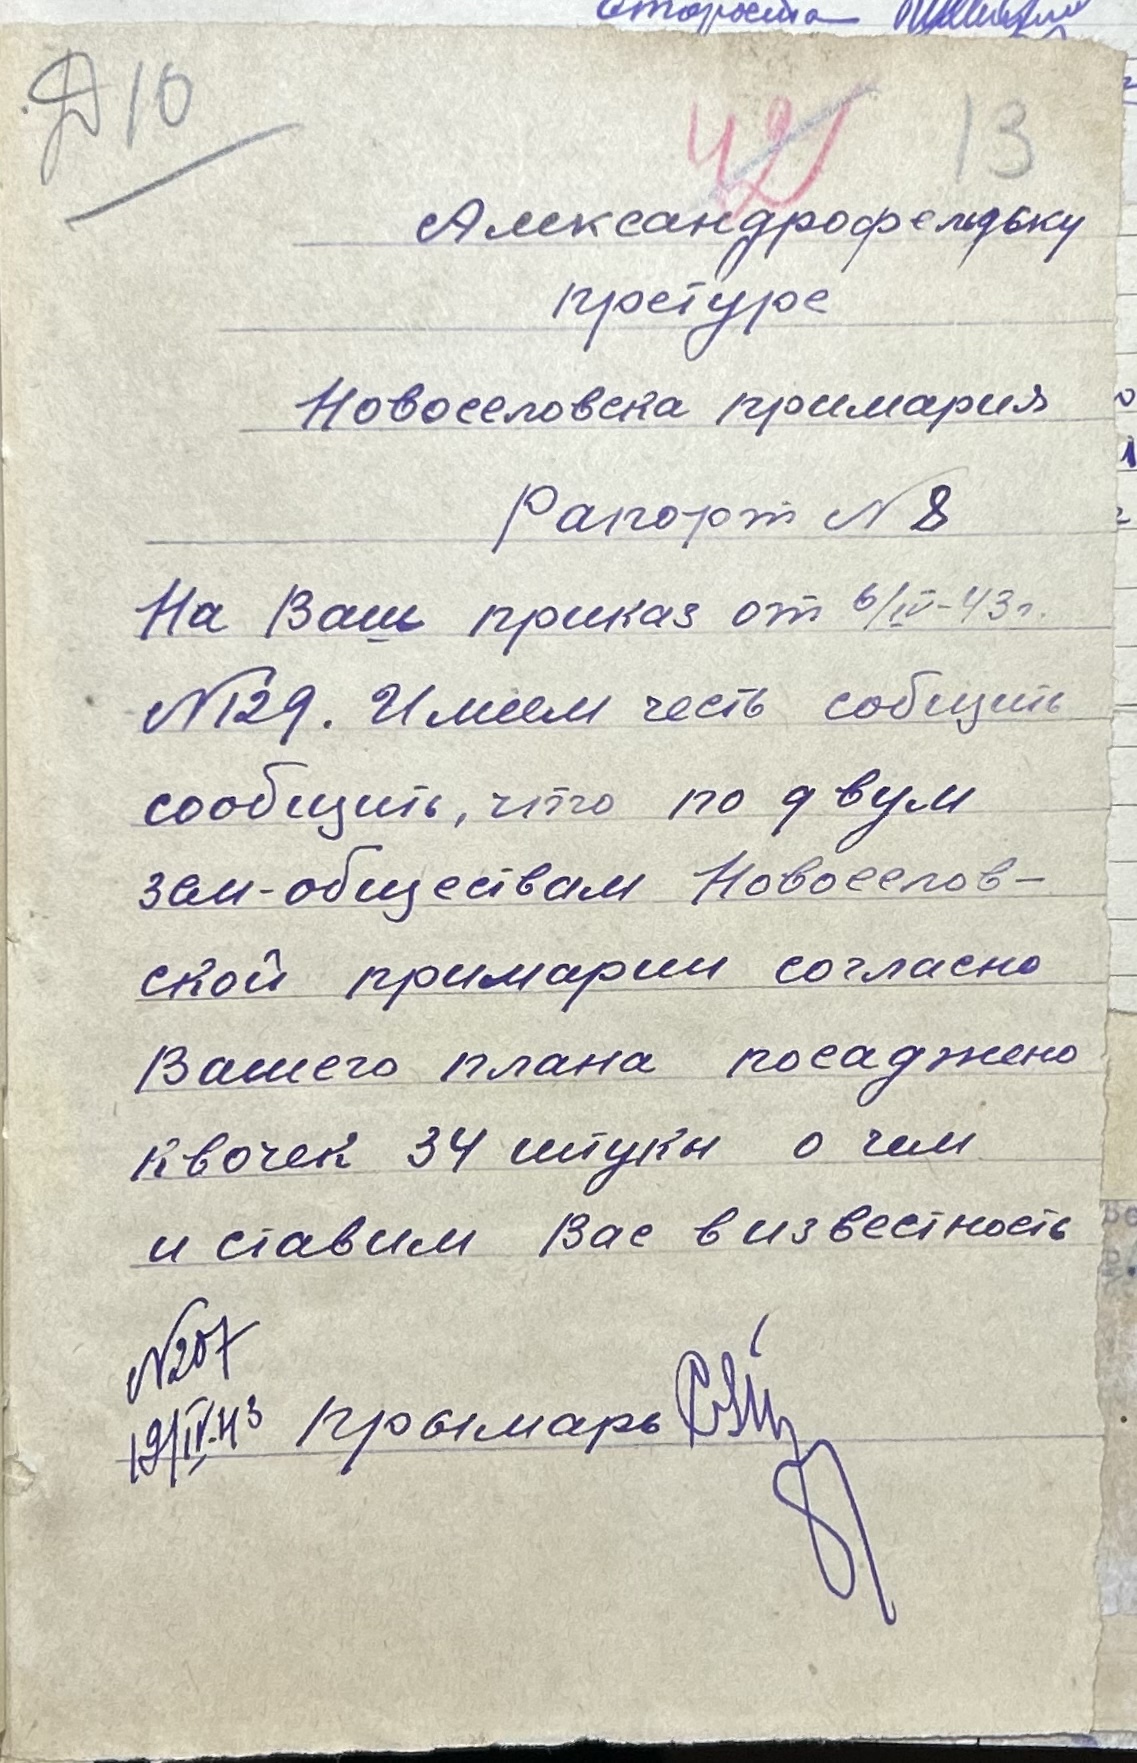 Староста
Д 10
42
13
Александрофельдьку
претуре
Новоселовска примария
Рапорт N 8
На Ваш приказ от 6/IV-43 г.
N129. Имеем честь собщить
сообщить, что по двум
зем-обществам Новоселов-
ской примарии согласно
Вашего плана посаджено
квочек 34 штукы о чем
и ставим Вас в известность
N207
19/IV-43 прымарь